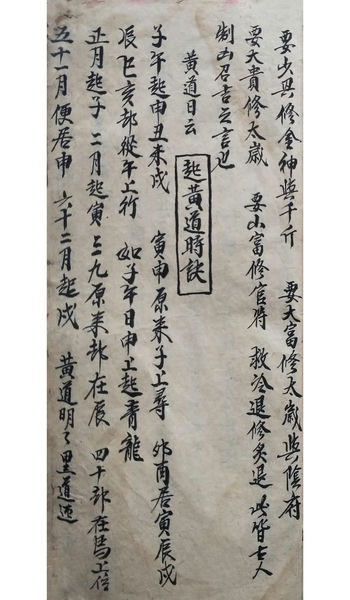 要少興修金神與千斤 要大富修太歲與陰府
要大貴修太歲 要小富修官符 救冷退修炙退 此皆古人
制凶召吉之言也
黃道日云
起黃道時訣
子午起申丑未戌 寅申原來子上尋 卯酉居寅辰戌
辰巳亥都從午上行 如子午日申上起青龍
正月起子二月起寅 三九原來都在辰 四十都在馬上
五十一月便居申 六十二月起戌 黃道明了里道